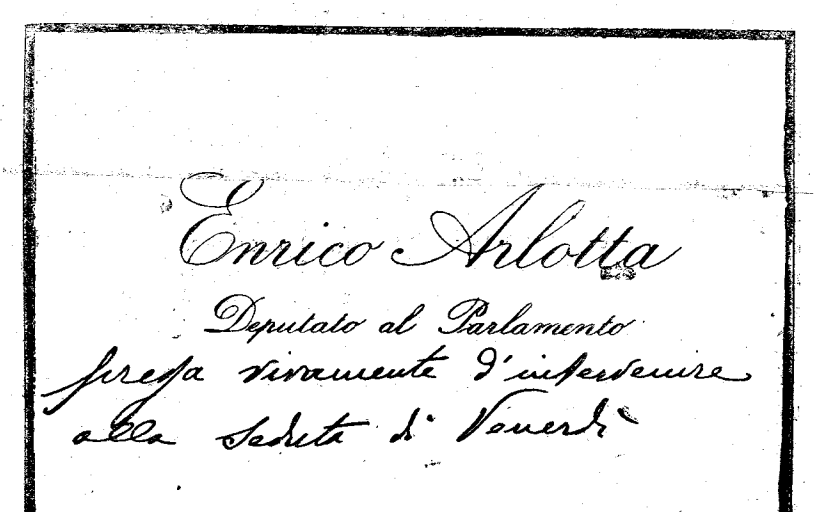 Enrico Arlotta
Deputato al Parlamento
prega vivamente d'intervenire
alla seduta di Venerdì